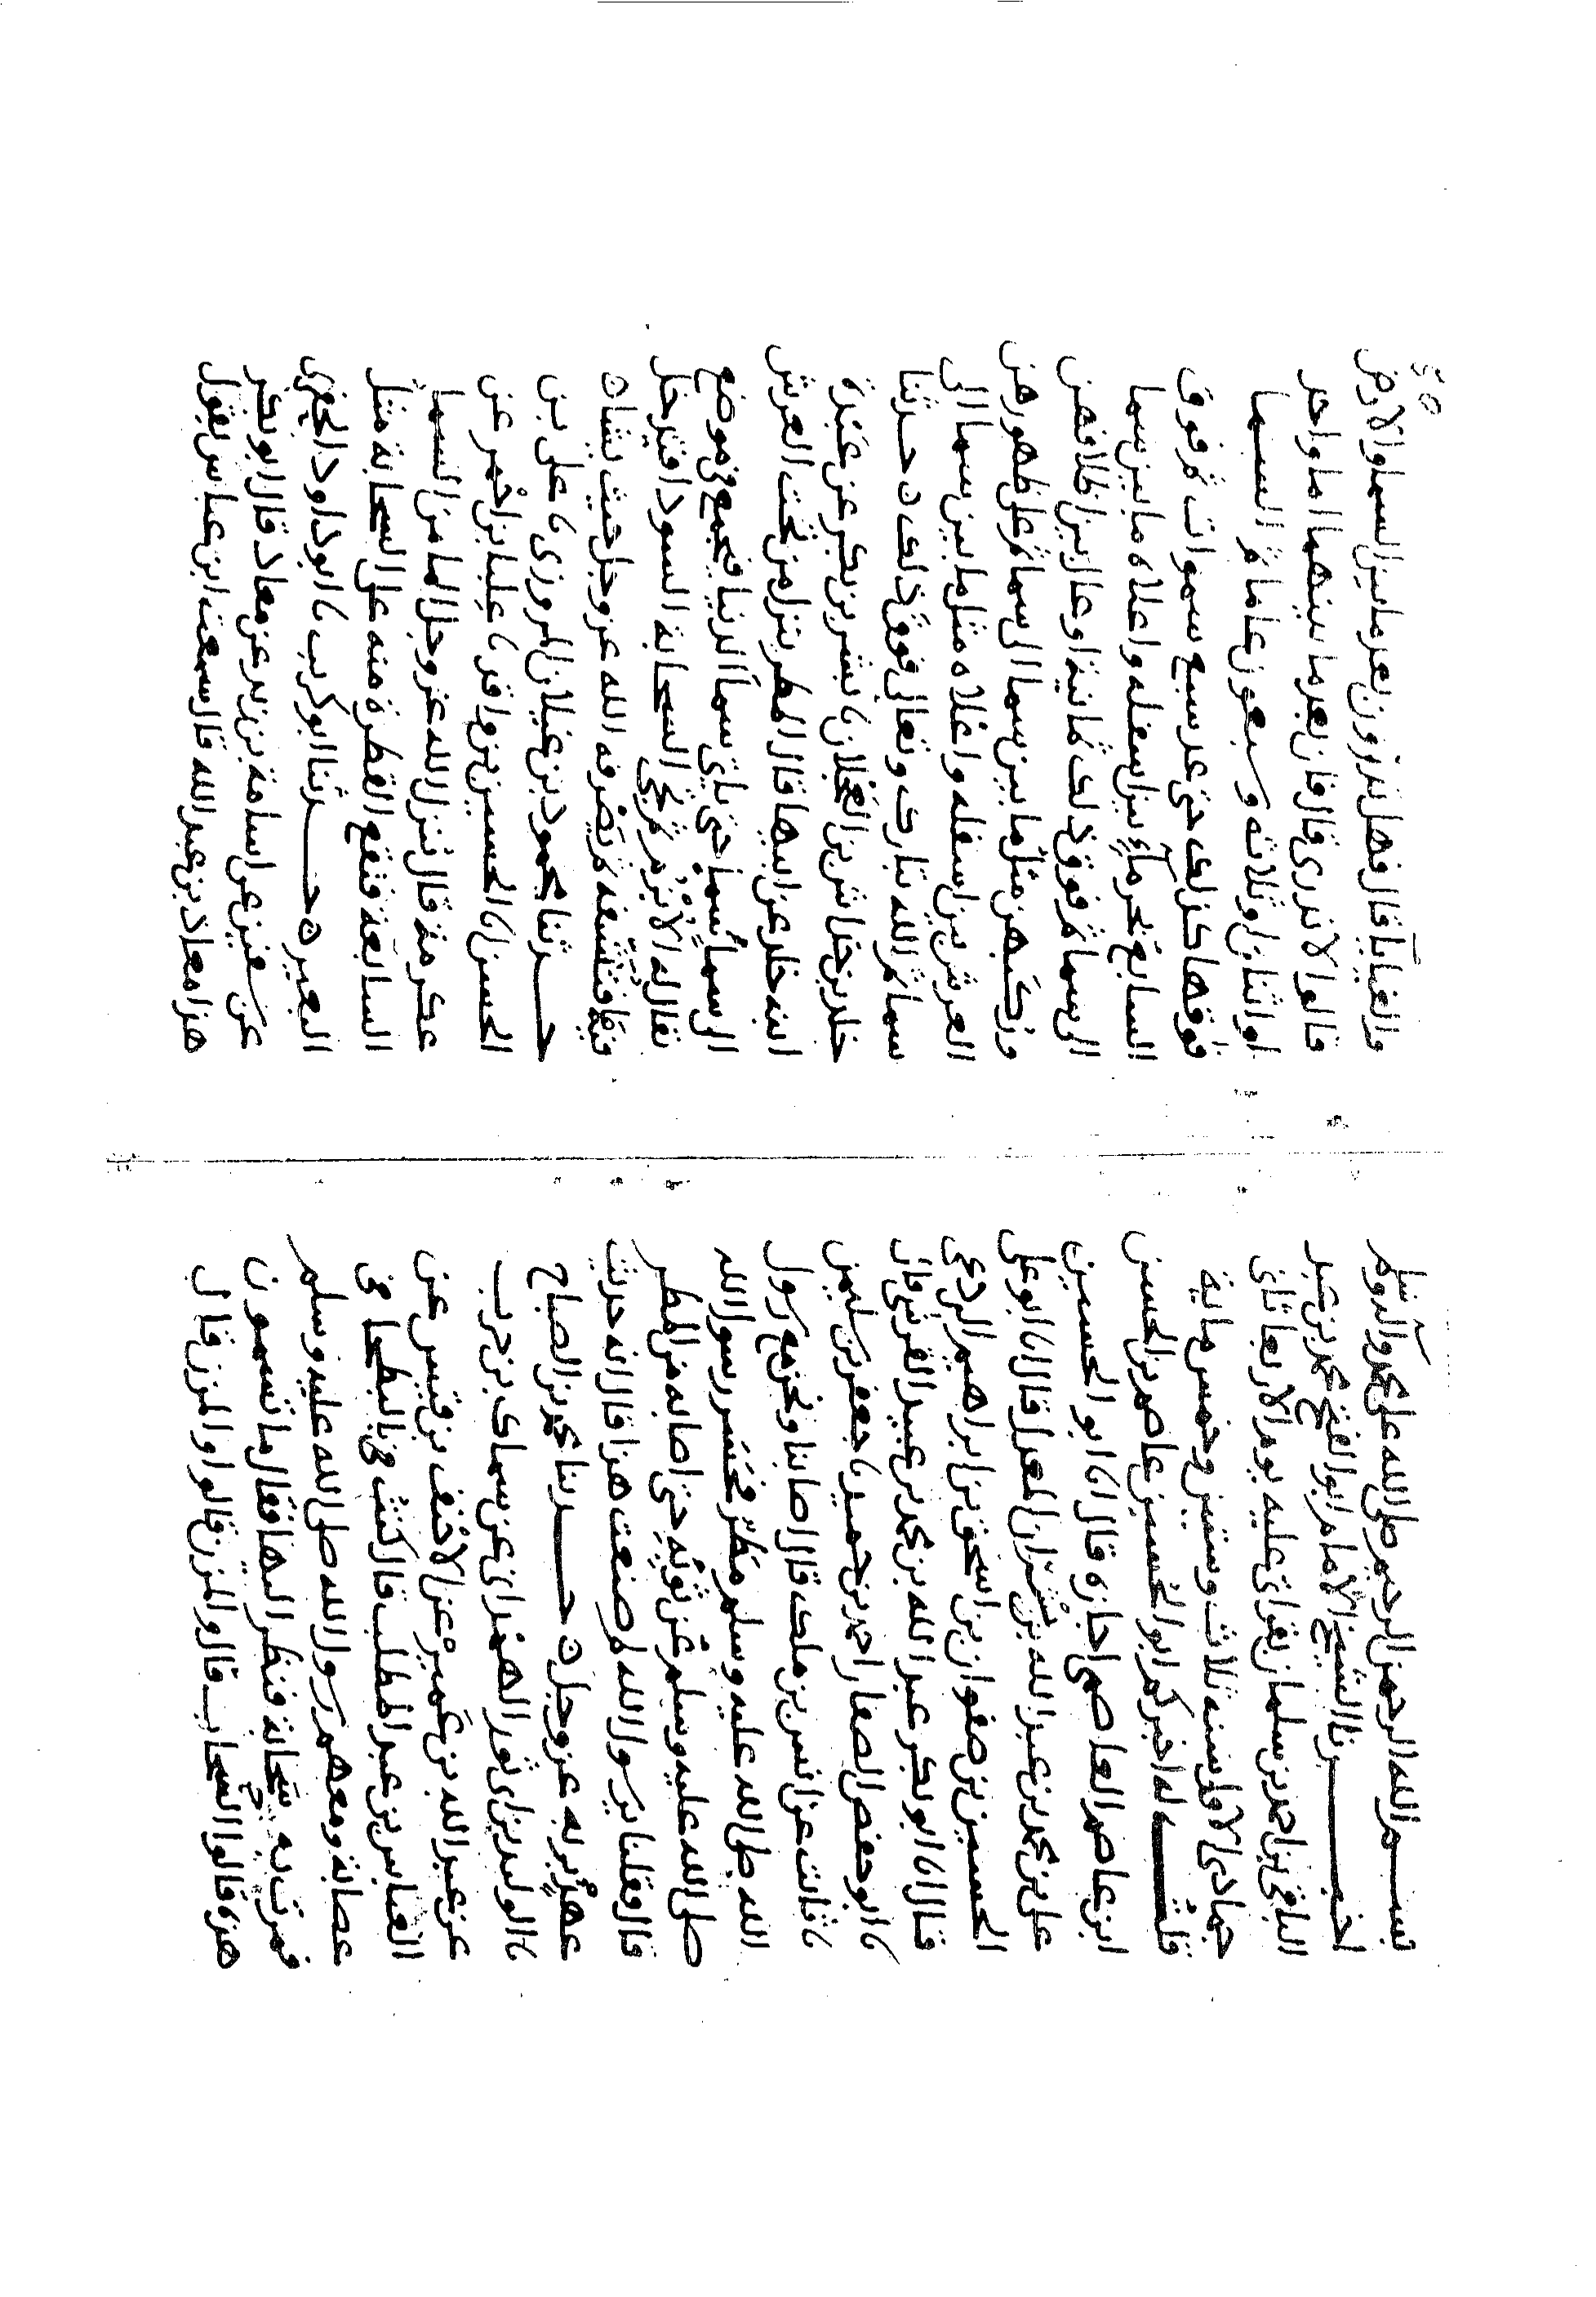 بسم الله الرحمن الرحيم صلى الله على محمد وآله وسلم
اخبرنا الشيخ الامام ابو الفتح محمد بن عبد
الباقي بن احمد بن سلمان بقراتي عليه يوم الاربعا ثاني
جمادى الاولى سنة ثلاث وستين وخمس ماية
قلت له اخبركم ابو الحسين عاصم بن الحسن
ابن عاصم العاصمي اجازة قال انا ابو الحسين
علي بن محمد بن عبد الله بن بشران المعدل قال انا ابو علي
الحسين بن صفوان بن اسحق بن ابراهيم البردعي
قال انا ابو بكر عبد الله بن محمد بن عبيد القرشي قال
نا ابو حفص الصفار احمد بن حميد نا جعفر بن سليمن
نا ثابت عن انس بن ملك قال اصابنا ونحن مع رسول
الله صلى الله عليه وسلم مطر فحسر رسول الله
صلى الله عليه وسلم عن ثوبه حتى اصابه من المطر
قال فقلنا يرسول الله لم صنعت هذا قال انه حديث
عهد بربه عز وجل ه حدثنا محمد بن الصباح
نا الوليد بن ابي ثور الهمداني عن سماك بن حرب
عن عبد الله بن عميرة عن الاحنف بن قيس عن
العباس بن عبد المطلب قال كنت في البطحا في
عصابة ومعهم رسول الله صلى الله عليه وسلم
فمرت به سحابة فنظر اليها فقال ما تسمون
هذه قالوا السحاب قال والمزن قالوا والمزن قال
والغيايا قال فهل تدرون بعد ما بين السما والارض
قالوا لا ندري قال فان بعد ما بينهما اما واحد
او اثنان او ثلاثه وسبعون عاما ثم السما
فوقها كذلك حتى عد سبع سموات ثم فوق
السابع بحر ما بين اسفله واعلاه ما بين سما
الى سما ثم فوق ذلك ثمانية اوعال بين اظلافهن
وركبهن مثل ما بين سما الى سما ثم على ظهورهن
العرش بين اسفله واعلاه مثل ما بين سما الى
سما ثم الله تبارك وتعالى فوق ذلك ه حدثنا
خلد بن خداش بن العجلان نا بشر بن بكر عن عبدة
ابنة خلد عن ابيها قال المطر ينزل من تحت العرش
الى سما سما حتى ياتي سما الدنيا فيجمع في موضع
يقال له الابزم ثم تجي السحابة السودا فتدخل
فيه فتشفه ثم يصرفه الله عز وجل حيث يشا ه
حدثنا محمود بن غيلان المروزي نا علي بن
الحسن نا الحسين بن واقد نا علبا بن احمر عن
عكرمة قال ينزل الله عز وجل الما من السما
السابعة فتقع القطرة منه على السحابة مثل
البعير ه حدثنا ابو كريب نا ابو داود الحفري
عن سفين عن اسامة بن زيد عن معاذ قال ابو بكر
هذا معاذ بن عبد الله قال سمعت ابن عباس يقول